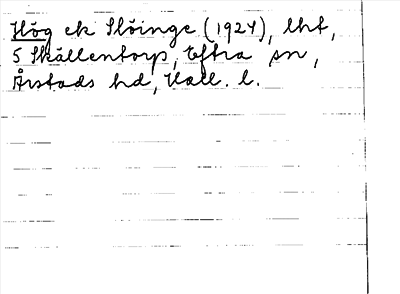 Hög ek Slöinge (1924), lht,
S Skällentorp, Eftra sn,
Årstads hd, Hall. l.